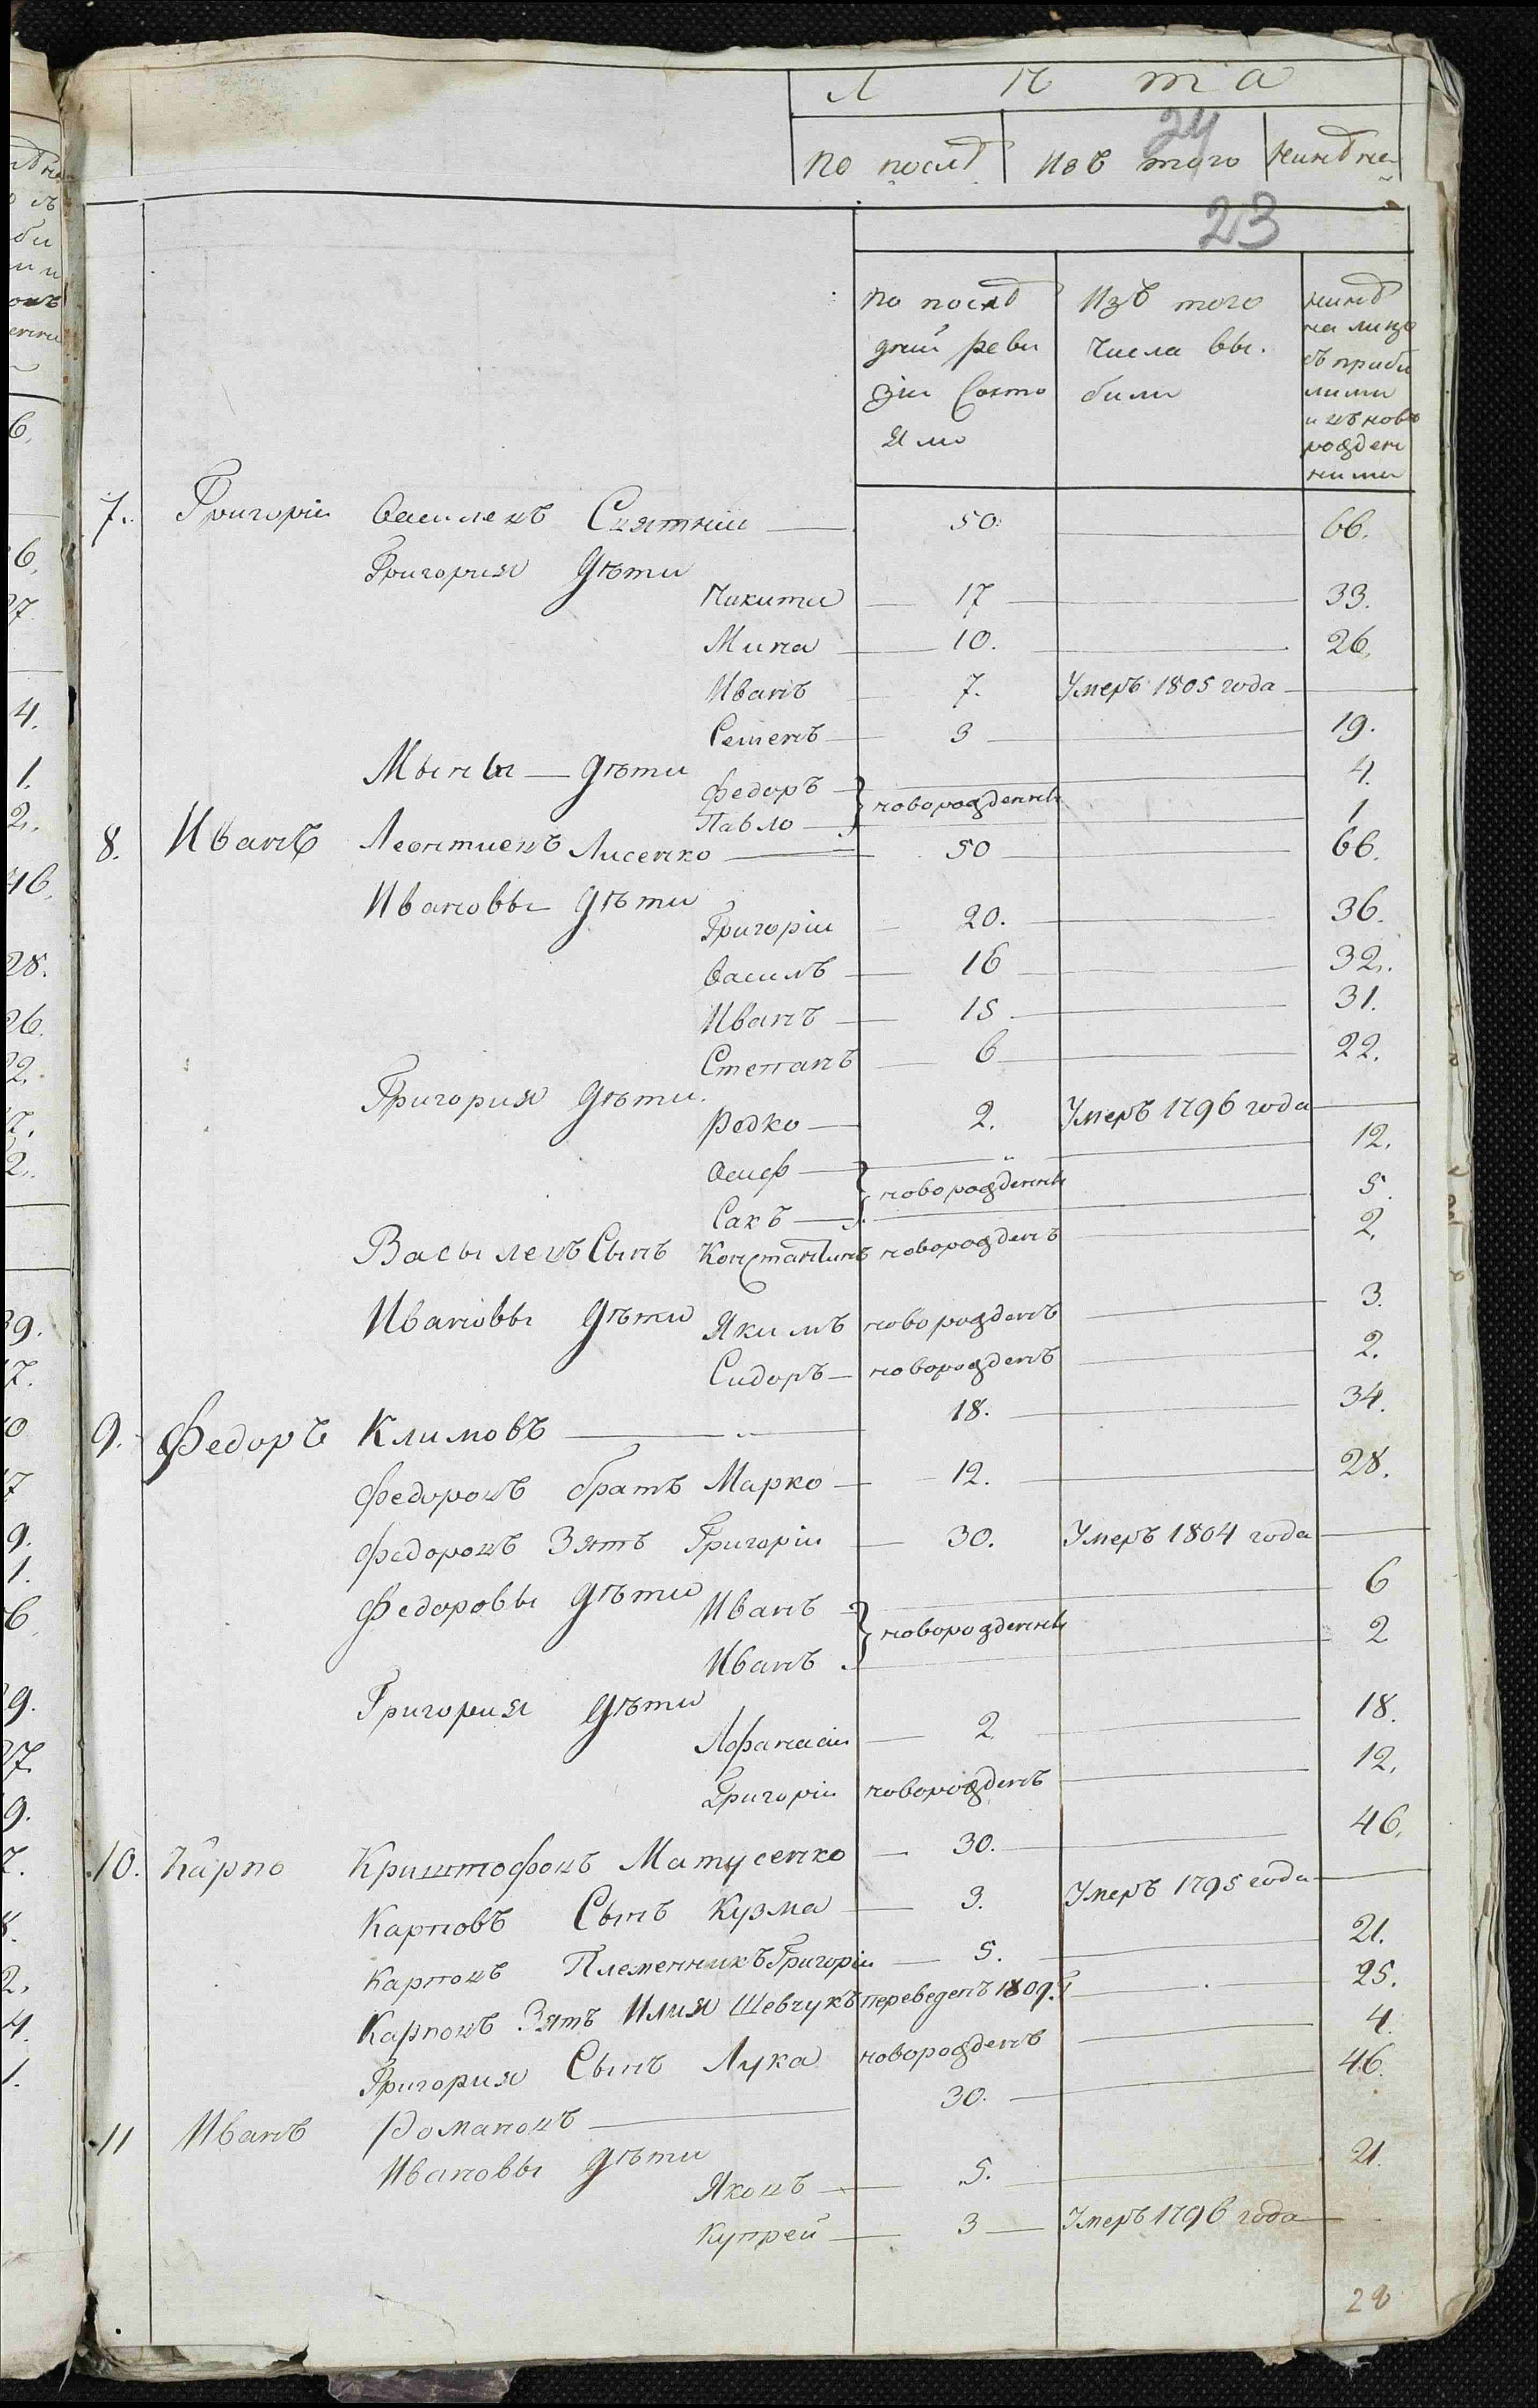 Л ѣ т а
24
По послѣ Изъ того нинѣ на
23
по послѣ дній реви зіи Состо яло
Изъ того числа вы. были
нинѣ на лицо съ прибы лими и ново рожден ними
7. Григорій Василевъ 50. 66.
Григория Дѣти
Никита 17 33.
Мина 10. 26.
Иванъ 7. Умеръ 1805 года
Семенъ 3 19.
Мыны Дѣти
Федоръ 4.
новорожденны
Павло 1
8. Иванъ Леонтиевъ Лисенко 50 66.
Ивановы Дѣти
Григорій 20. 36.
Василь 16 32.
Иванъ 15. 31.
Степанъ 6 22.
Григория Дѣти.
Редко 2. Умеръ 1796 года
Осиф 12.
новорожденны
Сакъ 5.
Васылевъ Сынъ Константинъ новорожденъ 2.
Ивановы Дѣти Якимъ новорожденъ 3.
Сидоръ новорожденъ 2.
9. Федоръ Климовъ 18. 34.
Федоровъ братъ Марко 12. 28.
Федоровъ Зять Григорій 30. Умеръ 1804 года
Федоровы Дѣти Иванъ 6
новорожденны
Иванъ 2
Григория Дѣти
Афанасій 2 18.
Григорій новорожденъ 12.
10. Карпо Криштофовъ Матусенко 30. 46.
Карповъ Сынъ Кузма 3. Умеръ 1795 года
Карповъ Племенникъ Григорій 5. 21.
Карповъ Зять Илия Шевчукъ переведенъ 1809. Г 25.
Григория Сынъ Лука новорожденъ 4.
11 Иванъ Романовъ 30. 46.
Ивановы Дѣти
Яковъ 5. 21.
Купрей 3 Умеръ 1796 года
28